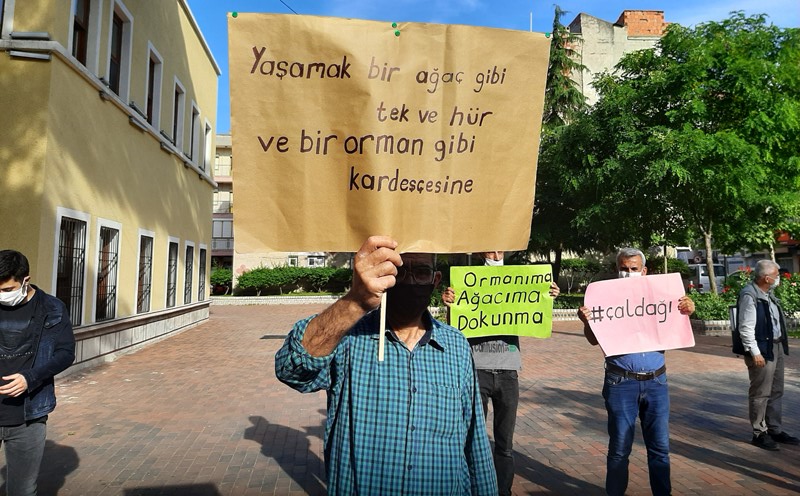 Yaşamak bir ağaç gibi
tek ve hür
ve bir orman gibi
kardeşçesine
Ormanıma
Ağacıma
Dokunma
#çaldağı